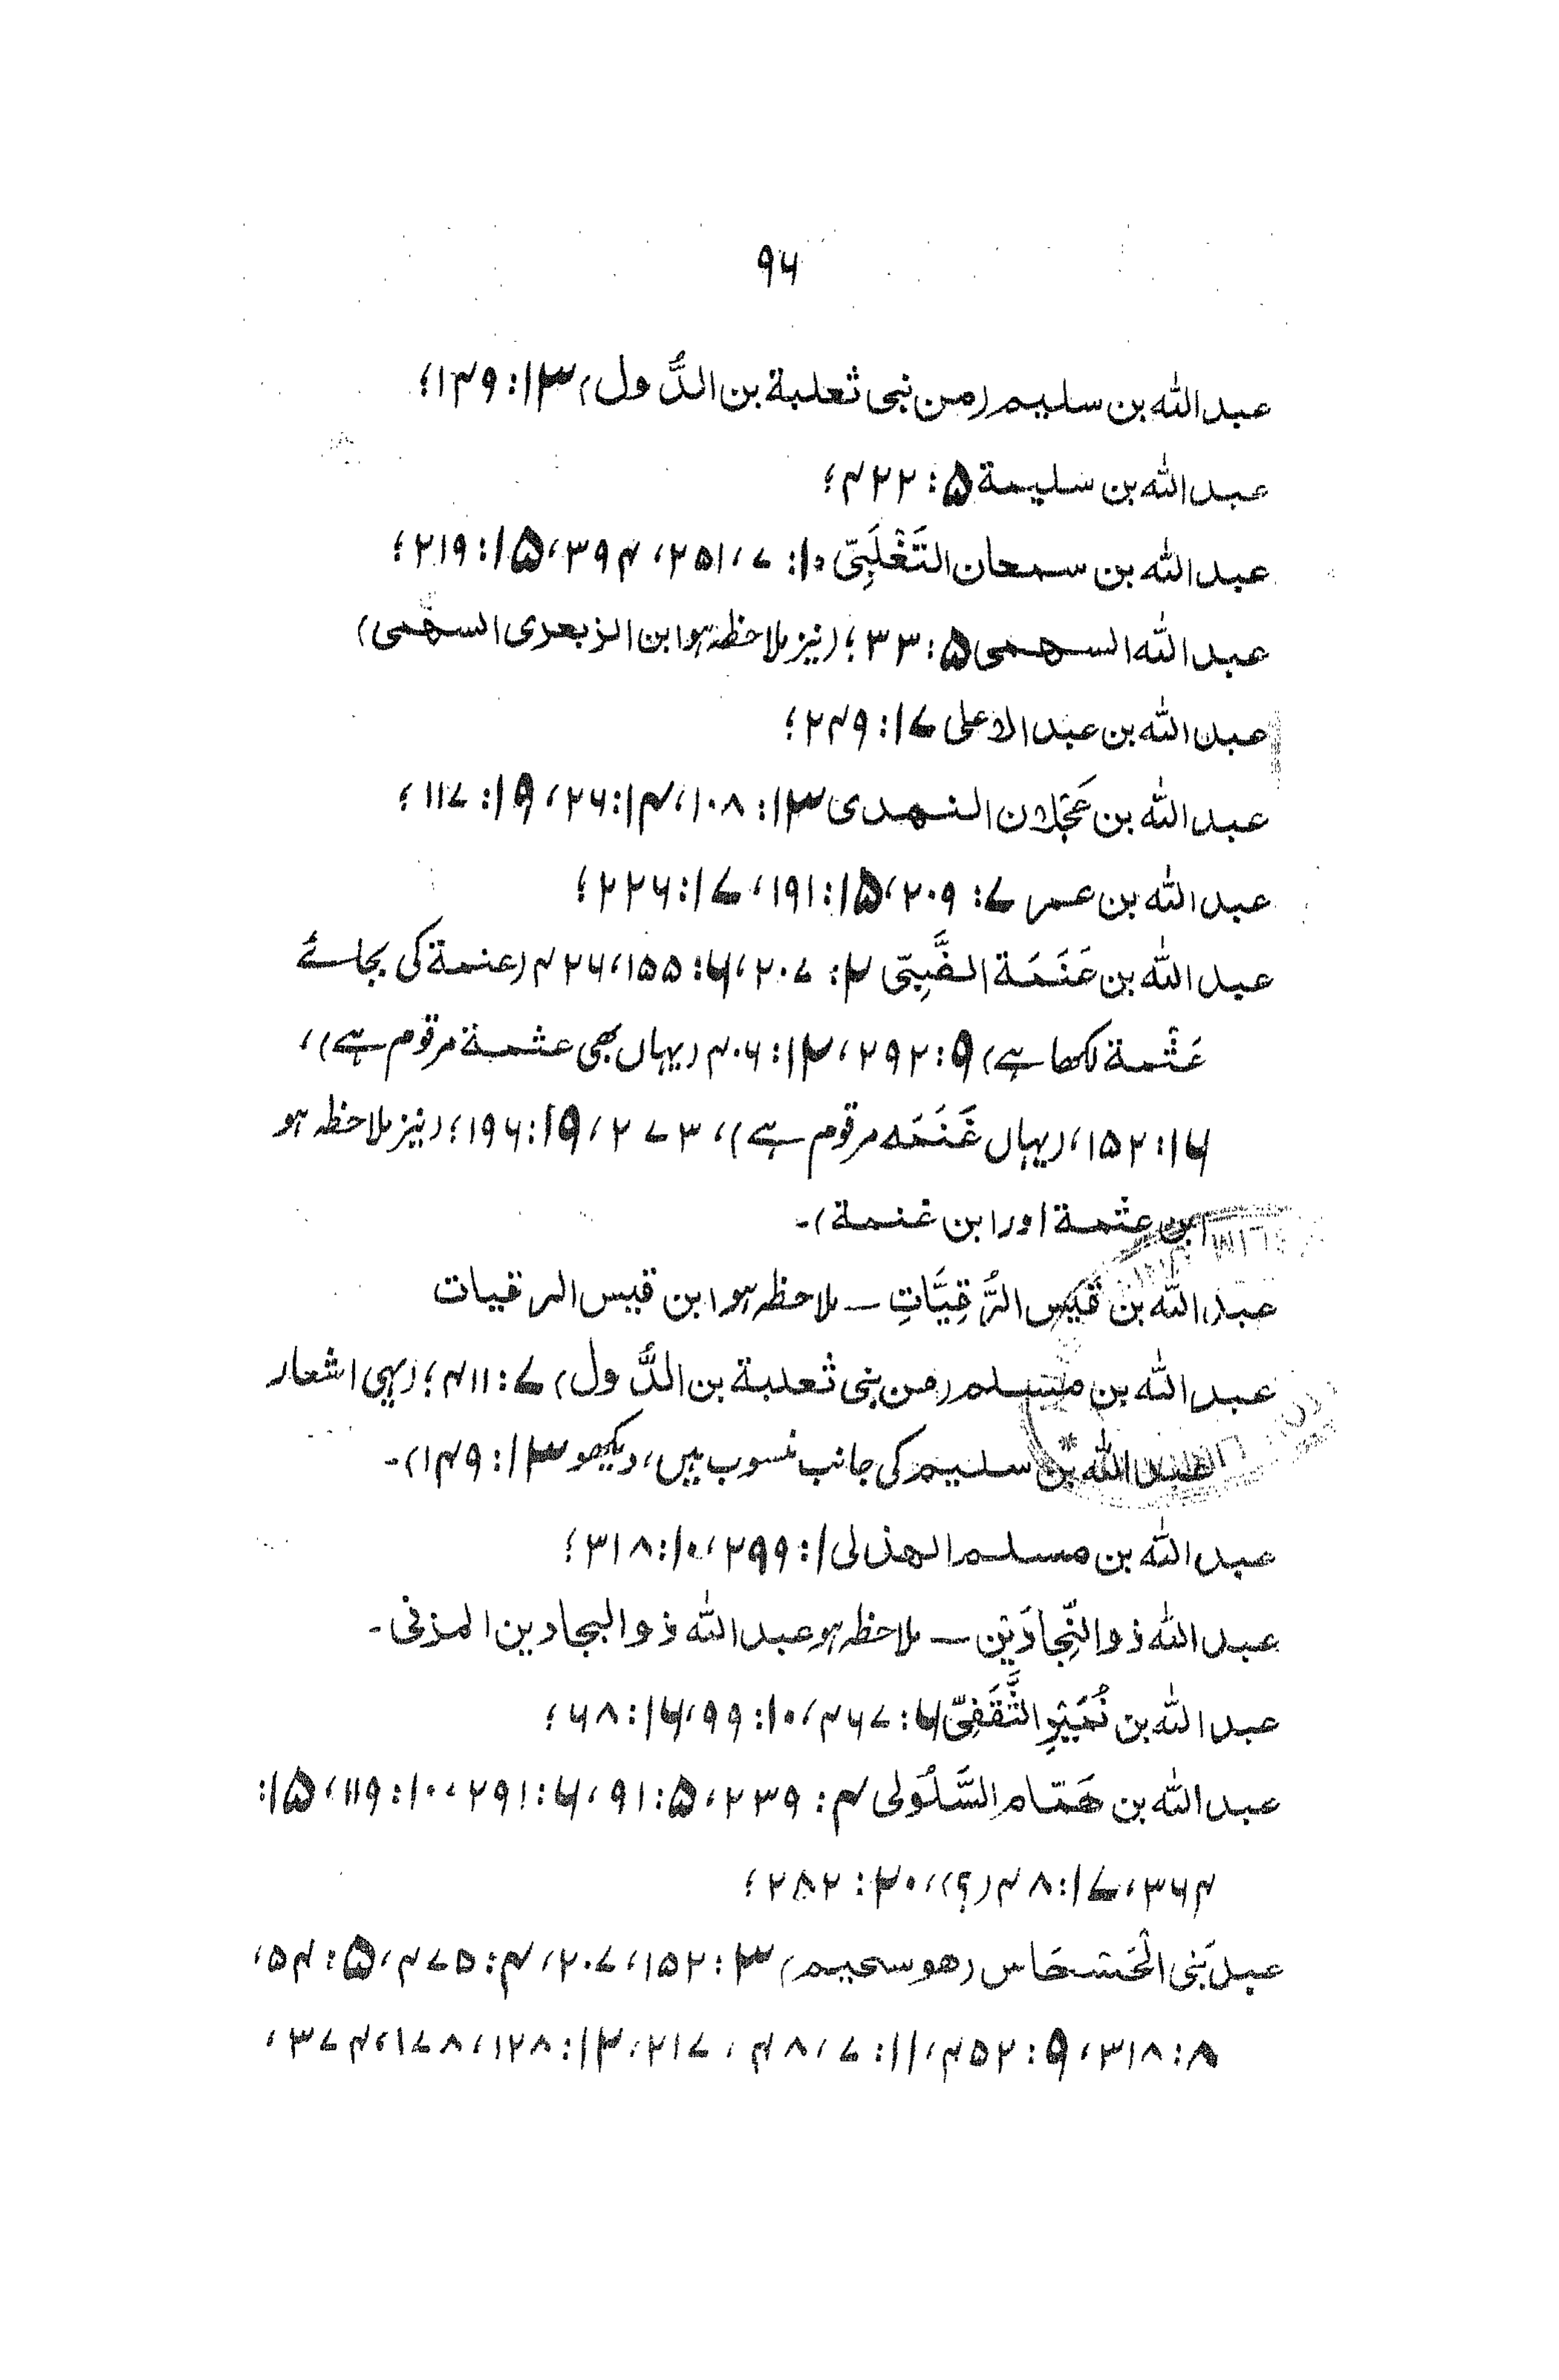 ۹۶
عبد اللہ بن سلیم (من بنی ثعلبة بن الدُّول) ۱۳: ۱۴۹؛
عبد اللہ بن سلیمة ۵: ۴۲۲؛
عبد اللہ بن سمعان التَّغْلَبِیّ ۱۰: ۷، ۲۵۱، ۳۹۴، ۱۵: ۲۱۹؛
عبد اللہ السہمی ۵: ۳۳؛ (نیز ملاحظہ ہو ابن الزبعری السہمی)
عبد اللہ بن عبد الاعلی ۱۷: ۲۴۹؛
عبد اللہ بن عَجْلان النہدی ۱۳: ۱۰۸، ۱۴: ۲۶، ۱۹: ۱۱۷؛
عبد اللہ بن عمر ۷: ۲۰۹، ۱۵: ۱۹۱، ۱۷: ۲۲۶؛
عبد اللہ بن عَنَمَة الضَّبِیّ ۲: ۲۰۷، ۶: ۱۵۵، ۴۲۶ (عنمة کی بجائے
عَثْمة لکھا ہے) ۹: ۲۹۲، ۱۲: ۴۰۶ (یہاں بھی عثمة مرقوم ہے)،
۱۶: ۱۵۲، (یہاں غَنَمَہ مرقوم ہے)، ۲۷۳، ۱۹: ۱۹۶؛ (نیز ملاحظہ ہو
ابن عثمة اور ابن غنمة)۔
عبد اللہ بن قَیس الرُّقِیَّاتِ — ملاحظہ ہو ابن قیس الرقیات
عبد اللہ بن مسلم (من بنی ثعلبة بن الدُّول) ۷: ۴۱۱؛ (یہی اشعار
عبد اللہ بن سلیم کی جانب منسوب ہیں، دیکھو ۱۳: ۱۴۹)۔
عبد اللہ بن مسلم الھذلی ۱: ۲۹۹، ۱۰: ۳۱۸؛
عبد اللہ ذو النِّجادَین — ملاحظہ ہو عبد اللہ ذو البجادین المزنی۔
عبد اللہ بن نُمَیْرِ الثَّقَفِیّ ۶: ۴۶۷، ۱۰: ۹۹، ۱۶: ۶۸؛
عبد اللہ بن ھَمّام السَّلُولی ۴: ۲۳۹، ۵: ۹۱، ۶: ۲۹۱، ۱۰: ۱۱۹، ۱۵:
۳۶۴، ۱۷: ۴۸ (؟)، ۲۰: ۲۸۲؛
عبد بَنی الحَسْحَاس (ھو سحیم) ۳: ۱۵۲، ۲۰۷، ۴: ۴۷۵، ۵: ۵۴،
۸: ۳۱۸، ۹: ۴۵۲، ۱۱: ۷، ۴۸، ۲۱۷، ۱۳: ۱۲۸، ۱۷۸، ۳۷۴،